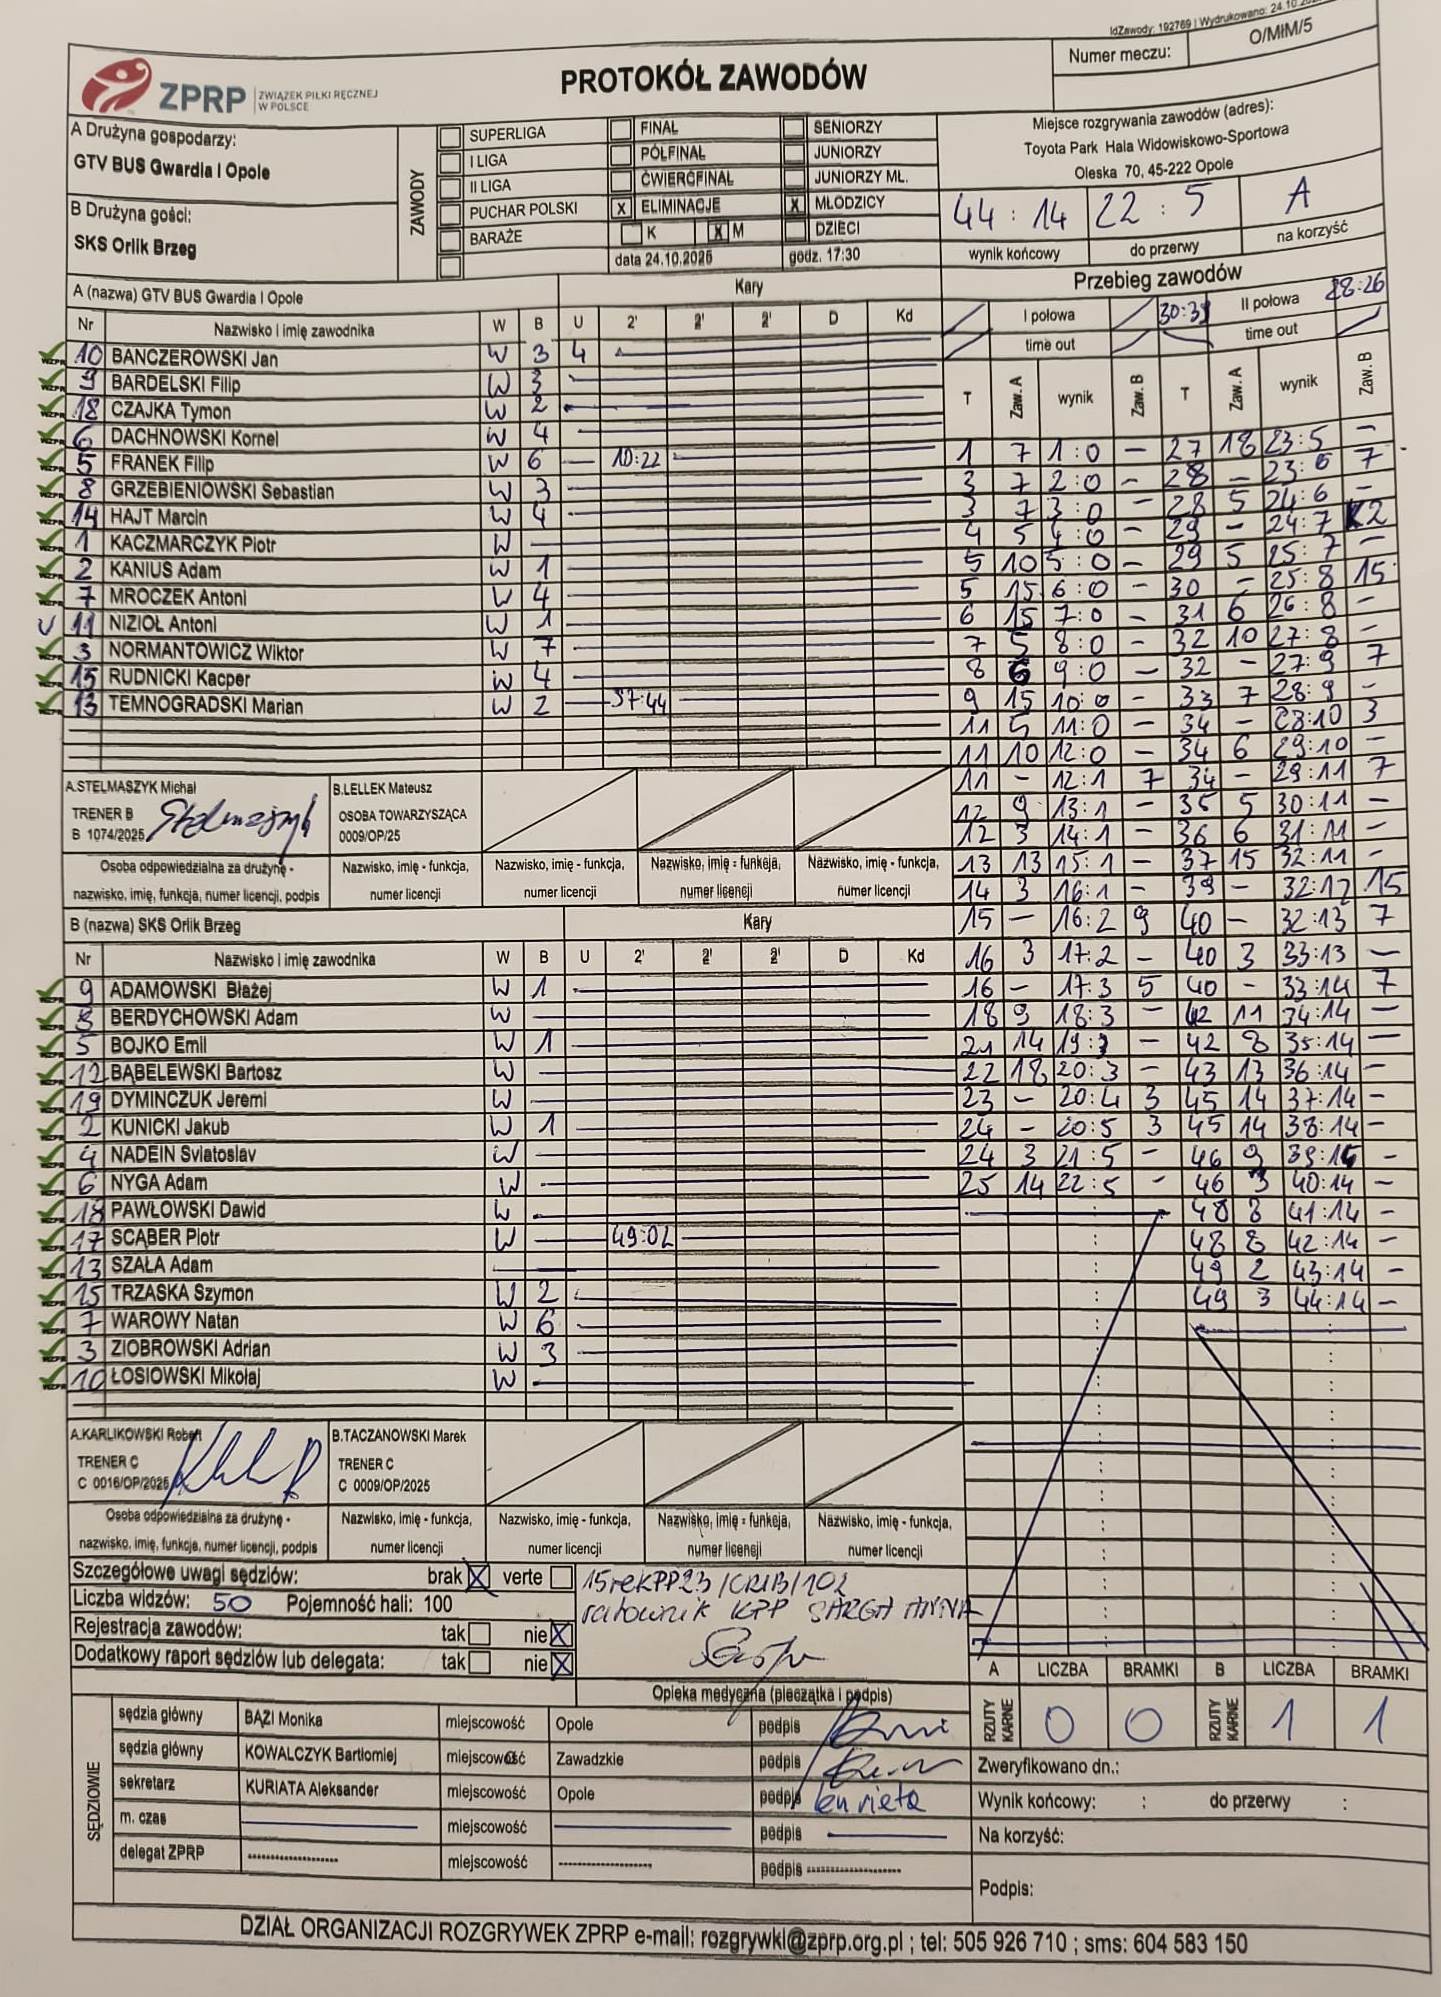 IdZawody: 192769 | Wydrukowano: 24.10.202
ZPRP ZWIĄZEK PIŁKI RĘCZNEJ W POLSCE
PROTOKÓŁ ZAWODÓW
Numer meczu: O/MłM/5
A Drużyna gospodarzy:
GTV BUS Gwardia I Opole
B Drużyna gości:
SKS Orlik Brzeg
ZAWODY
SUPERLIGA
I LIGA
II LIGA
PUCHAR POLSKI
BARAŻE
FINAŁ
PÓŁFINAŁ
ĆWIERĆFINAŁ
X ELIMINACJE
K X M
SENIORZY
JUNIORZY
JUNIORZY MŁ.
X MŁODZICY
DZIECI
data 24.10.2025 godz. 17:30
Miejsce rozgrywania zawodów (adres):
Toyota Park Hala Widowiskowo-Sportowa
Oleska 70, 45-222 Opole
44 : 14 22 : 5 A
wynik końcowy do przerwy na korzyść
A (nazwa) GTV BUS Gwardia I Opole Kary
Nr Nazwisko i imię zawodnika W B U 2' 2' 2' D Kd
10 BANCZEROWSKI Jan W 3 4
9 BARDELSKI Filip W 3
18 CZAJKA Tymon W 2
6 DACHNOWSKI Kornel W 4
5 FRANEK Filip W 6 — 10:22
8 GRZEBIENIOWSKI Sebastian W 3
14 HAJT Marcin W 4
1 KACZMARCZYK Piotr W
2 KANIUS Adam W 1
7 MROCZEK Antoni W 4
11 NIZIOŁ Antoni W 1
3 NORMANTOWICZ Wiktor W 7
15 RUDNICKI Kacper W 4
13 TEMNOGRADSKI Marian W 2 37:44
A.STELMASZYK Michał
TRENER B
B 1074/2025
B.LELLEK Mateusz
OSOBA TOWARZYSZĄCA
0009/OP/25
Osoba odpowiedzialna za drużynę -
nazwisko, imię, funkcja, numer licencji, podpis
Nazwisko, imię - funkcja,
numer licencji
Nazwisko, imię - funkcja,
numer licencji
Nazwisko, imię - funkcja,
numer licencji
Nazwisko, imię - funkcja,
numer licencji
B (nazwa) SKS Orlik Brzeg Kary
Nr Nazwisko i imię zawodnika W B U 2' 2' 2' D Kd
9 ADAMOWSKI Błażej W 1
8 BERDYCHOWSKI Adam W
5 BOJKO Emil W 1
12 BĄBELEWSKI Bartosz W
19 DYMINCZUK Jeremi W
2 KUNICKI Jakub W 1
4 NADEIN Sviatoslav W
6 NYGA Adam W
18 PAWŁOWSKI Dawid W
17 SCĄBER Piotr W 49:02
13 SZALA Adam
15 TRZASKA Szymon W 2
7 WAROWY Natan W 6
3 ZIOBROWSKI Adrian W 3
10 ŁOSIOWSKI Mikołaj W
A.KARLIKOWSKI Robert
TRENER C
C 0016/OP/2025
B.TACZANOWSKI Marek
TRENER C
C 0009/OP/2025
Osoba odpowiedzialna za drużynę -
nazwisko, imię, funkcja, numer licencji, podpis
Nazwisko, imię - funkcja,
numer licencji
Nazwisko, imię - funkcja,
numer licencji
Nazwisko, imię - funkcja,
numer licencji
Nazwisko, imię - funkcja,
numer licencji
Przebieg zawodów
I połowa 30:39 II połowa 28:26
time out time out
T Zaw. A wynik Zaw. B T Zaw. A wynik Zaw. B
1 7 1:0 — 27 18 23:5 —
3 7 2:0 — 28 — 23:6 7
3 7 3:0 — 28 5 24:6 —
4 5 4:0 — 29 — 24:7 2
5 10 5:0 — 29 5 25:7 —
5 15 6:0 — 30 — 25:8 15
6 15 7:0 — 31 6 26:8 —
7 5 8:0 — 32 10 27:8 —
8 6 9:0 — 32 — 27:9 7
9 15 10:0 — 33 7 28:9 —
11 5 11:0 — 34 — 28:10 3
11 10 12:0 — 34 6 29:10 —
11 — 12:1 7 34 — 29:11 7
12 9 13:1 — 35 5 30:11 —
12 3 14:1 — 36 6 31:11 —
13 13 15:1 — 37 15 32:11 —
14 3 16:1 — 39 — 32:12 15
15 — 16:2 9 40 — 32:13 7
16 3 17:2 — 40 3 33:13 —
16 — 17:3 5 40 — 33:14 7
18 9 18:3 — 42 11 34:14 —
21 14 19:3 — 42 8 35:14 —
22 18 20:3 — 43 13 36:14 —
23 — 20:4 3 45 14 37:14 —
24 — 20:5 3 45 14 38:14 —
24 3 21:5 — 46 9 39:14 —
25 14 22:5 — 46 3 40:14 —
48 8 41:14 —
48 8 42:14 —
49 2 43:14 —
49 3 44:14 —
Szczegółowe uwagi sędziów: brak X verte
Liczba widzów: 50 Pojemność hali: 100
Rejestracja zawodów: tak nie X
Dodatkowy raport sędziów lub delegata: tak nie X
ratownik KPP SARGA ANNA
Opieka medyczna (pieczątka i podpis)
A LICZBA BRAMKI B LICZBA BRAMKI
RZUTY KARNE 0 0 RZUTY KARNE 1 1
SĘDZIOWIE
sędzia główny BĄZI Monika miejscowość Opole podpis
sędzia główny KOWALCZYK Bartłomiej miejscowość Zawadzkie podpis
sekretarz KURIATA Aleksander miejscowość Opole podpis
m. czas miejscowość podpis
delegat ZPRP miejscowość podpis
Zweryfikowano dn.:
Wynik końcowy: : do przerwy :
Na korzyść:
Podpis:
DZIAŁ ORGANIZACJI ROZGRYWEK ZPRP e-mail: rozgrywki@zprp.org.pl ; tel: 505 926 710 ; sms: 604 583 150